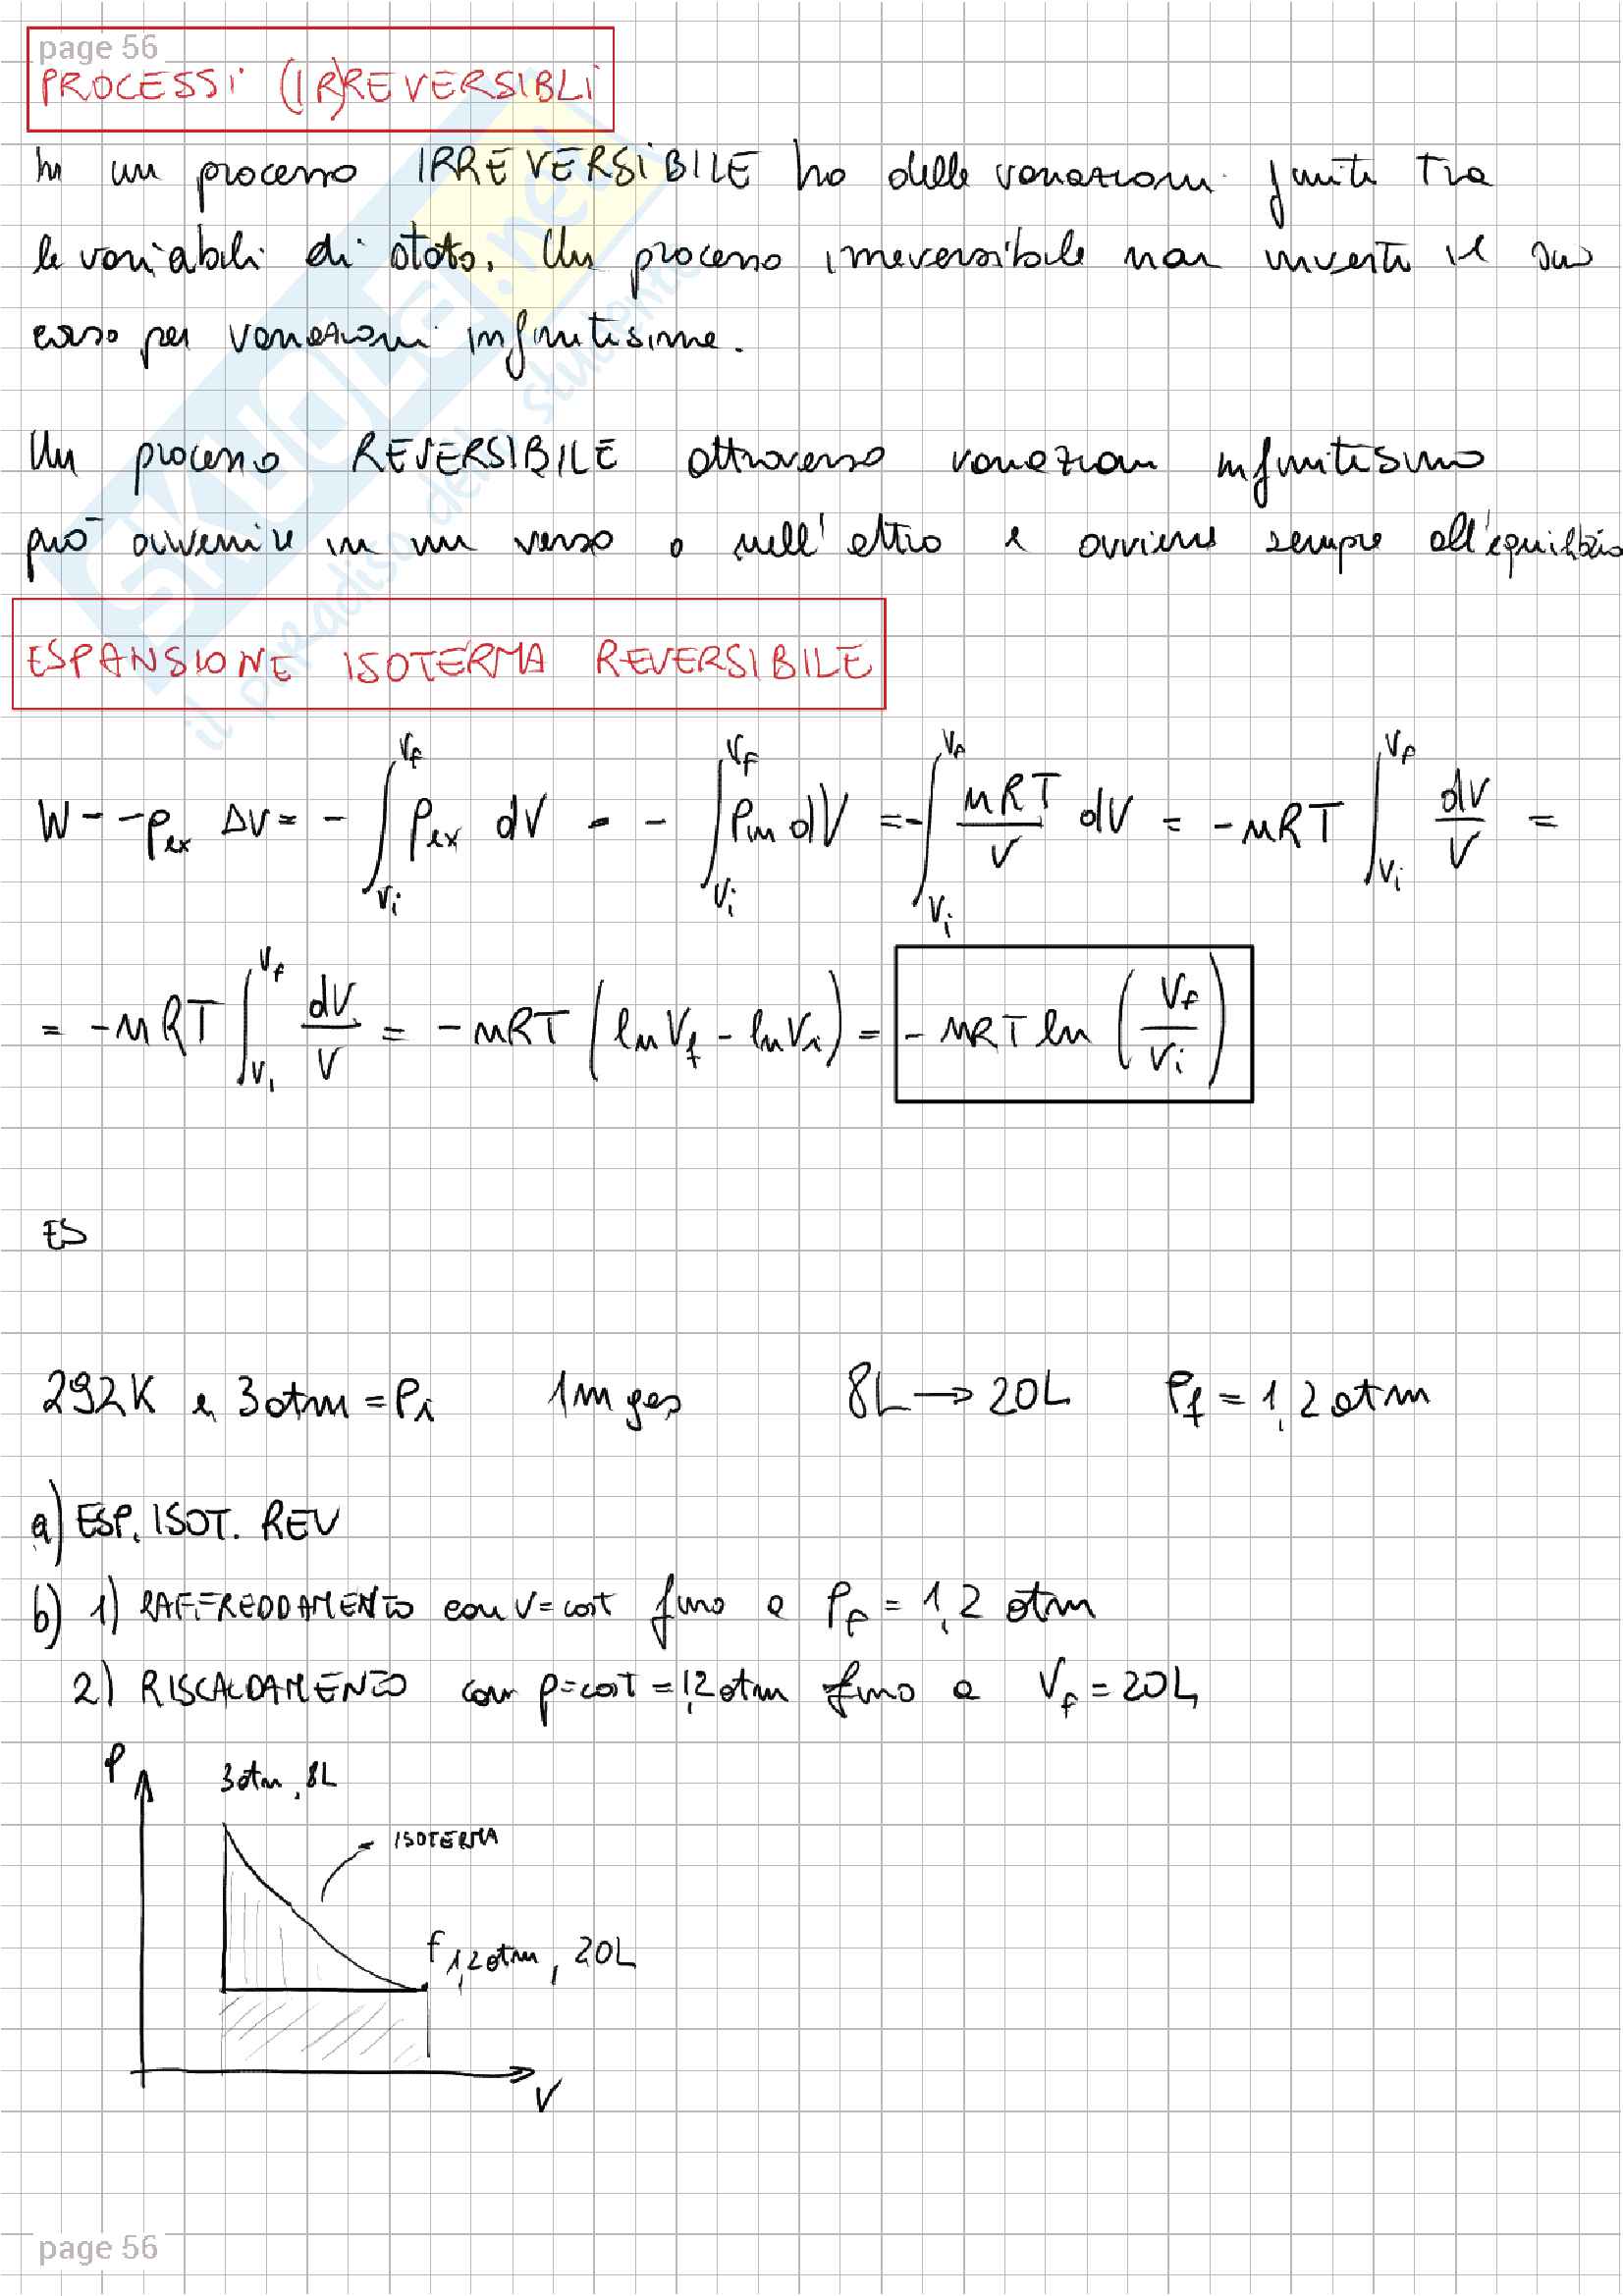 page 56
PROCESSI (IR)REVERSIBLI
In un processo IRREVERSIBILE ho delle variazioni finite tra
le variabili di stato. Un processo irreversibile non inverte il suo
corso per variazioni infinitesime.
Un processo REVERSIBILE attraverso variazioni infinitesimo
può avvenire in un verso o nell'altro e avviene sempre all'equilibrio
ESPANSIONE ISOTERMA REVERSIBILE
W = -Pex ΔV = - ∫_{Vi}^{Vf} Pex dV = - ∫_{Vi}^{Vf} Pin dV = - ∫_{Vi}^{Vf} nRT/V dV = -nRT ∫_{Vi}^{Vf} dV/V =
= -nRT ∫_{Vi}^{Vf} dV/V = -nRT (ln Vf - ln Vi) = -nRT ln (Vf/Vi)
ES
292K e 3atm = Pi 1m gas 8L → 20L Pf = 1,2 atm
a) ESP. ISOT. REV
b) 1) RAFFREDDAMENTO con V=cost fino a Pf = 1,2 atm
2) RISCALDAMENTO con p=cost = 1,2 atm fino a Vf = 20L
P
3atm, 8L
ISOTERMA
f 1,2 atm, 20L
V
page 56
SKUOLA.net
il paradiso dello studente